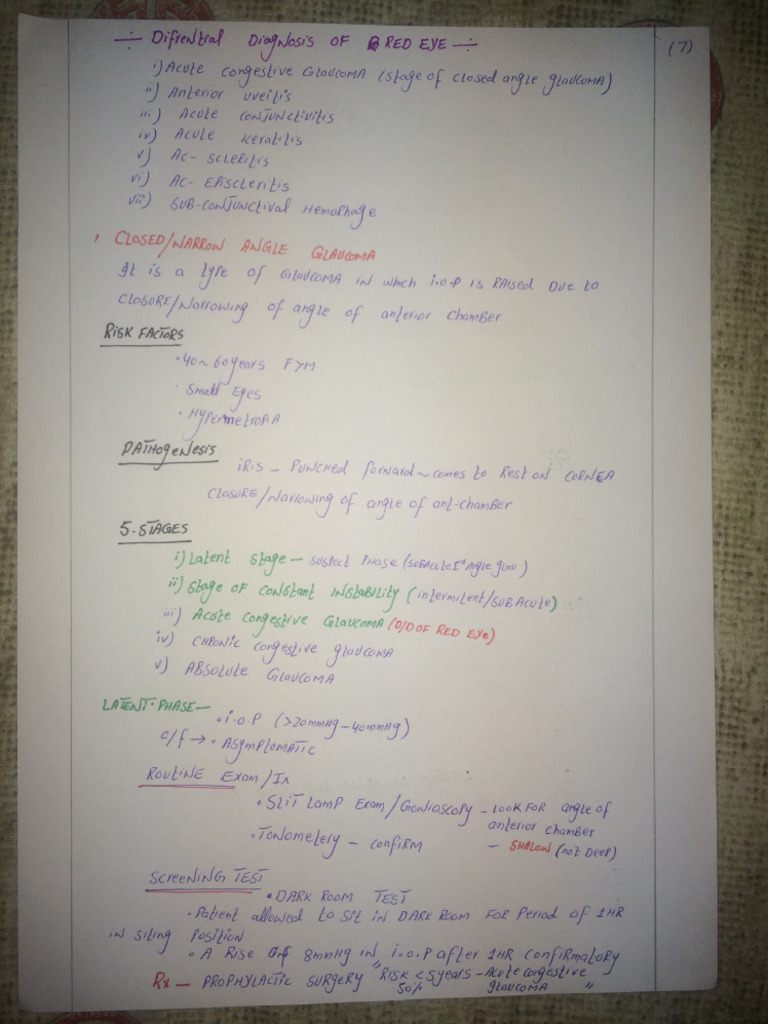 ÷ Difrential Diagnosis of RED EYE ÷
(7)
i) Acute congestive Glaucoma (stage of closed angle glaucoma)
ii) Anterior uveitis
iii) Acute conjunctivitis
iv) Acute Keratitis
v) Ac- Scleritis
vi) Ac- Episcleritis
vii) Sub-conjunctival Hemorhage
CLOSED/NARROW ANGLE GLAUCOMA
It is a type of Glaucoma in which i.o.p is Raised Due to
CLOSURE/Narrowing of angle of anterior chamber
RISK FACTORS
• 40~60years F>M
• Small Eyes
• Hypermetropia
PATHOgenesis
iRis – Punched forward ~ comes to Rest on CORNEA
CLOSURE/Narrowing of angle of ant-chamber
5-STAGES
i) Latent stage – suspect phase (subacute I° angle glau)
ii) Stage of constant instability (intermitent/SUBAcute)
iii) Acute congestive Glaucoma (D/D OF RED EYe)
iv) CHRONIC congestive glaucoma
v) ABSOLUTE GLaucoma
LATENT-PHASE –
• i.o.p (>20mmHg – 40mmHg)
c/f → • Asymplomatic
ROUTINE Exam/Ix
• SLIT Lamp Exam/Gonioscopy – Look FOR angle of
anterior chamber
• Tonometery – confirm – SHALOW (not Deep)
SCREENING TEST
• DARK ROOM TEST
• Patient allowed to sit in DARK ROOM FOR Period of 1HR
in siting Position
• A Rise of 8mmHg in i.o.p after 1HR confirmatory
Rx – PROPHYLACTIC SURGERY "RISK < 5years – Acute congestive
50% glaucoma "